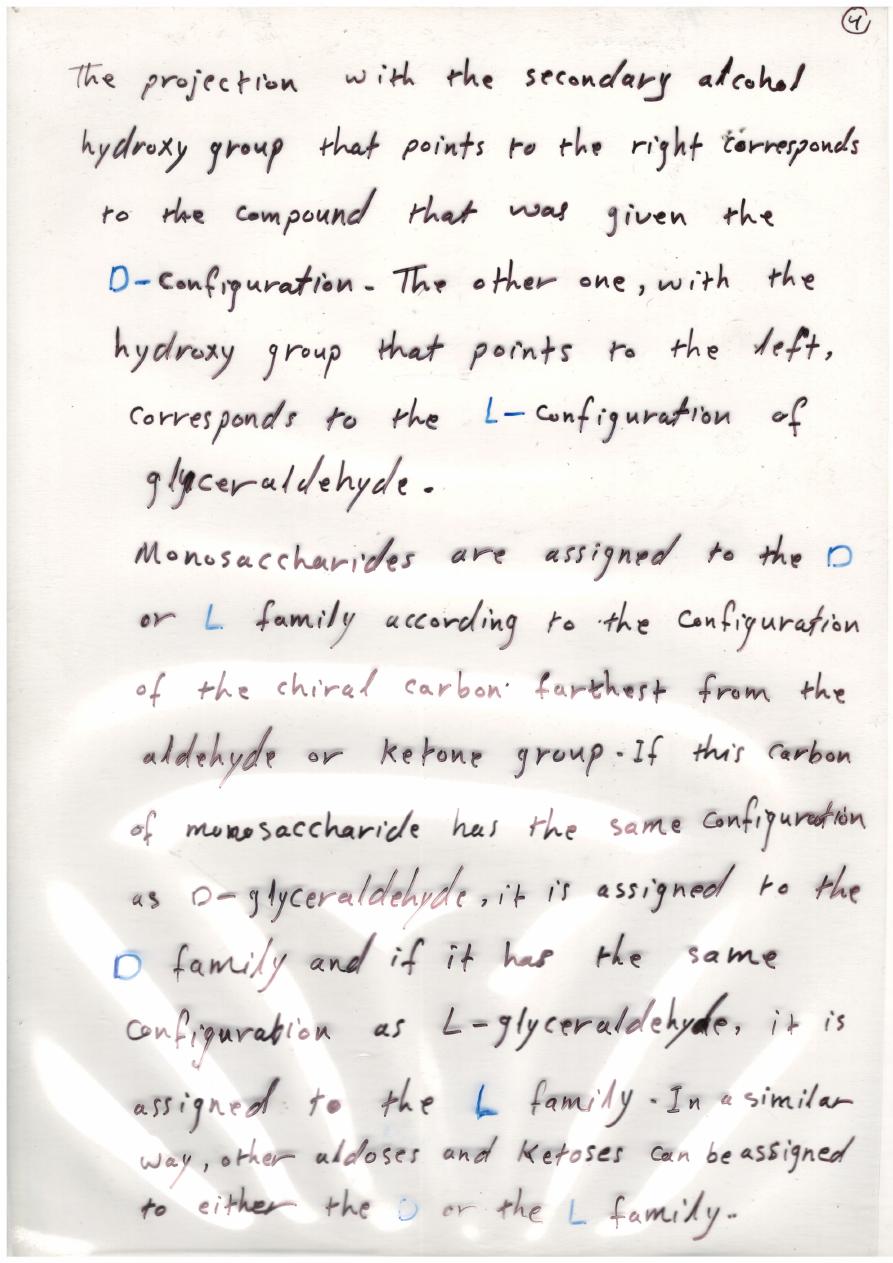 4
The projection with the secondary alcohol
hydroxy group that points to the right corresponds
to the compound that was given the
D-configuration. The other one, with the
hydroxy group that points to the left,
corresponds to the L-configuration of
glyceraldehyde.
Monosaccharides are assigned to the D
or L family according to the configuration
of the chiral carbon farthest from the
aldehyde or ketone group. If this carbon
of monosaccharide has the same configuration
as D-glyceraldehyde, it is assigned to the
D family and if it has the same
configuration as L-glyceraldehyde, it is
assigned to the L family. In a similar
way, other aldoses and ketoses can be assigned
to either the D or the L family.